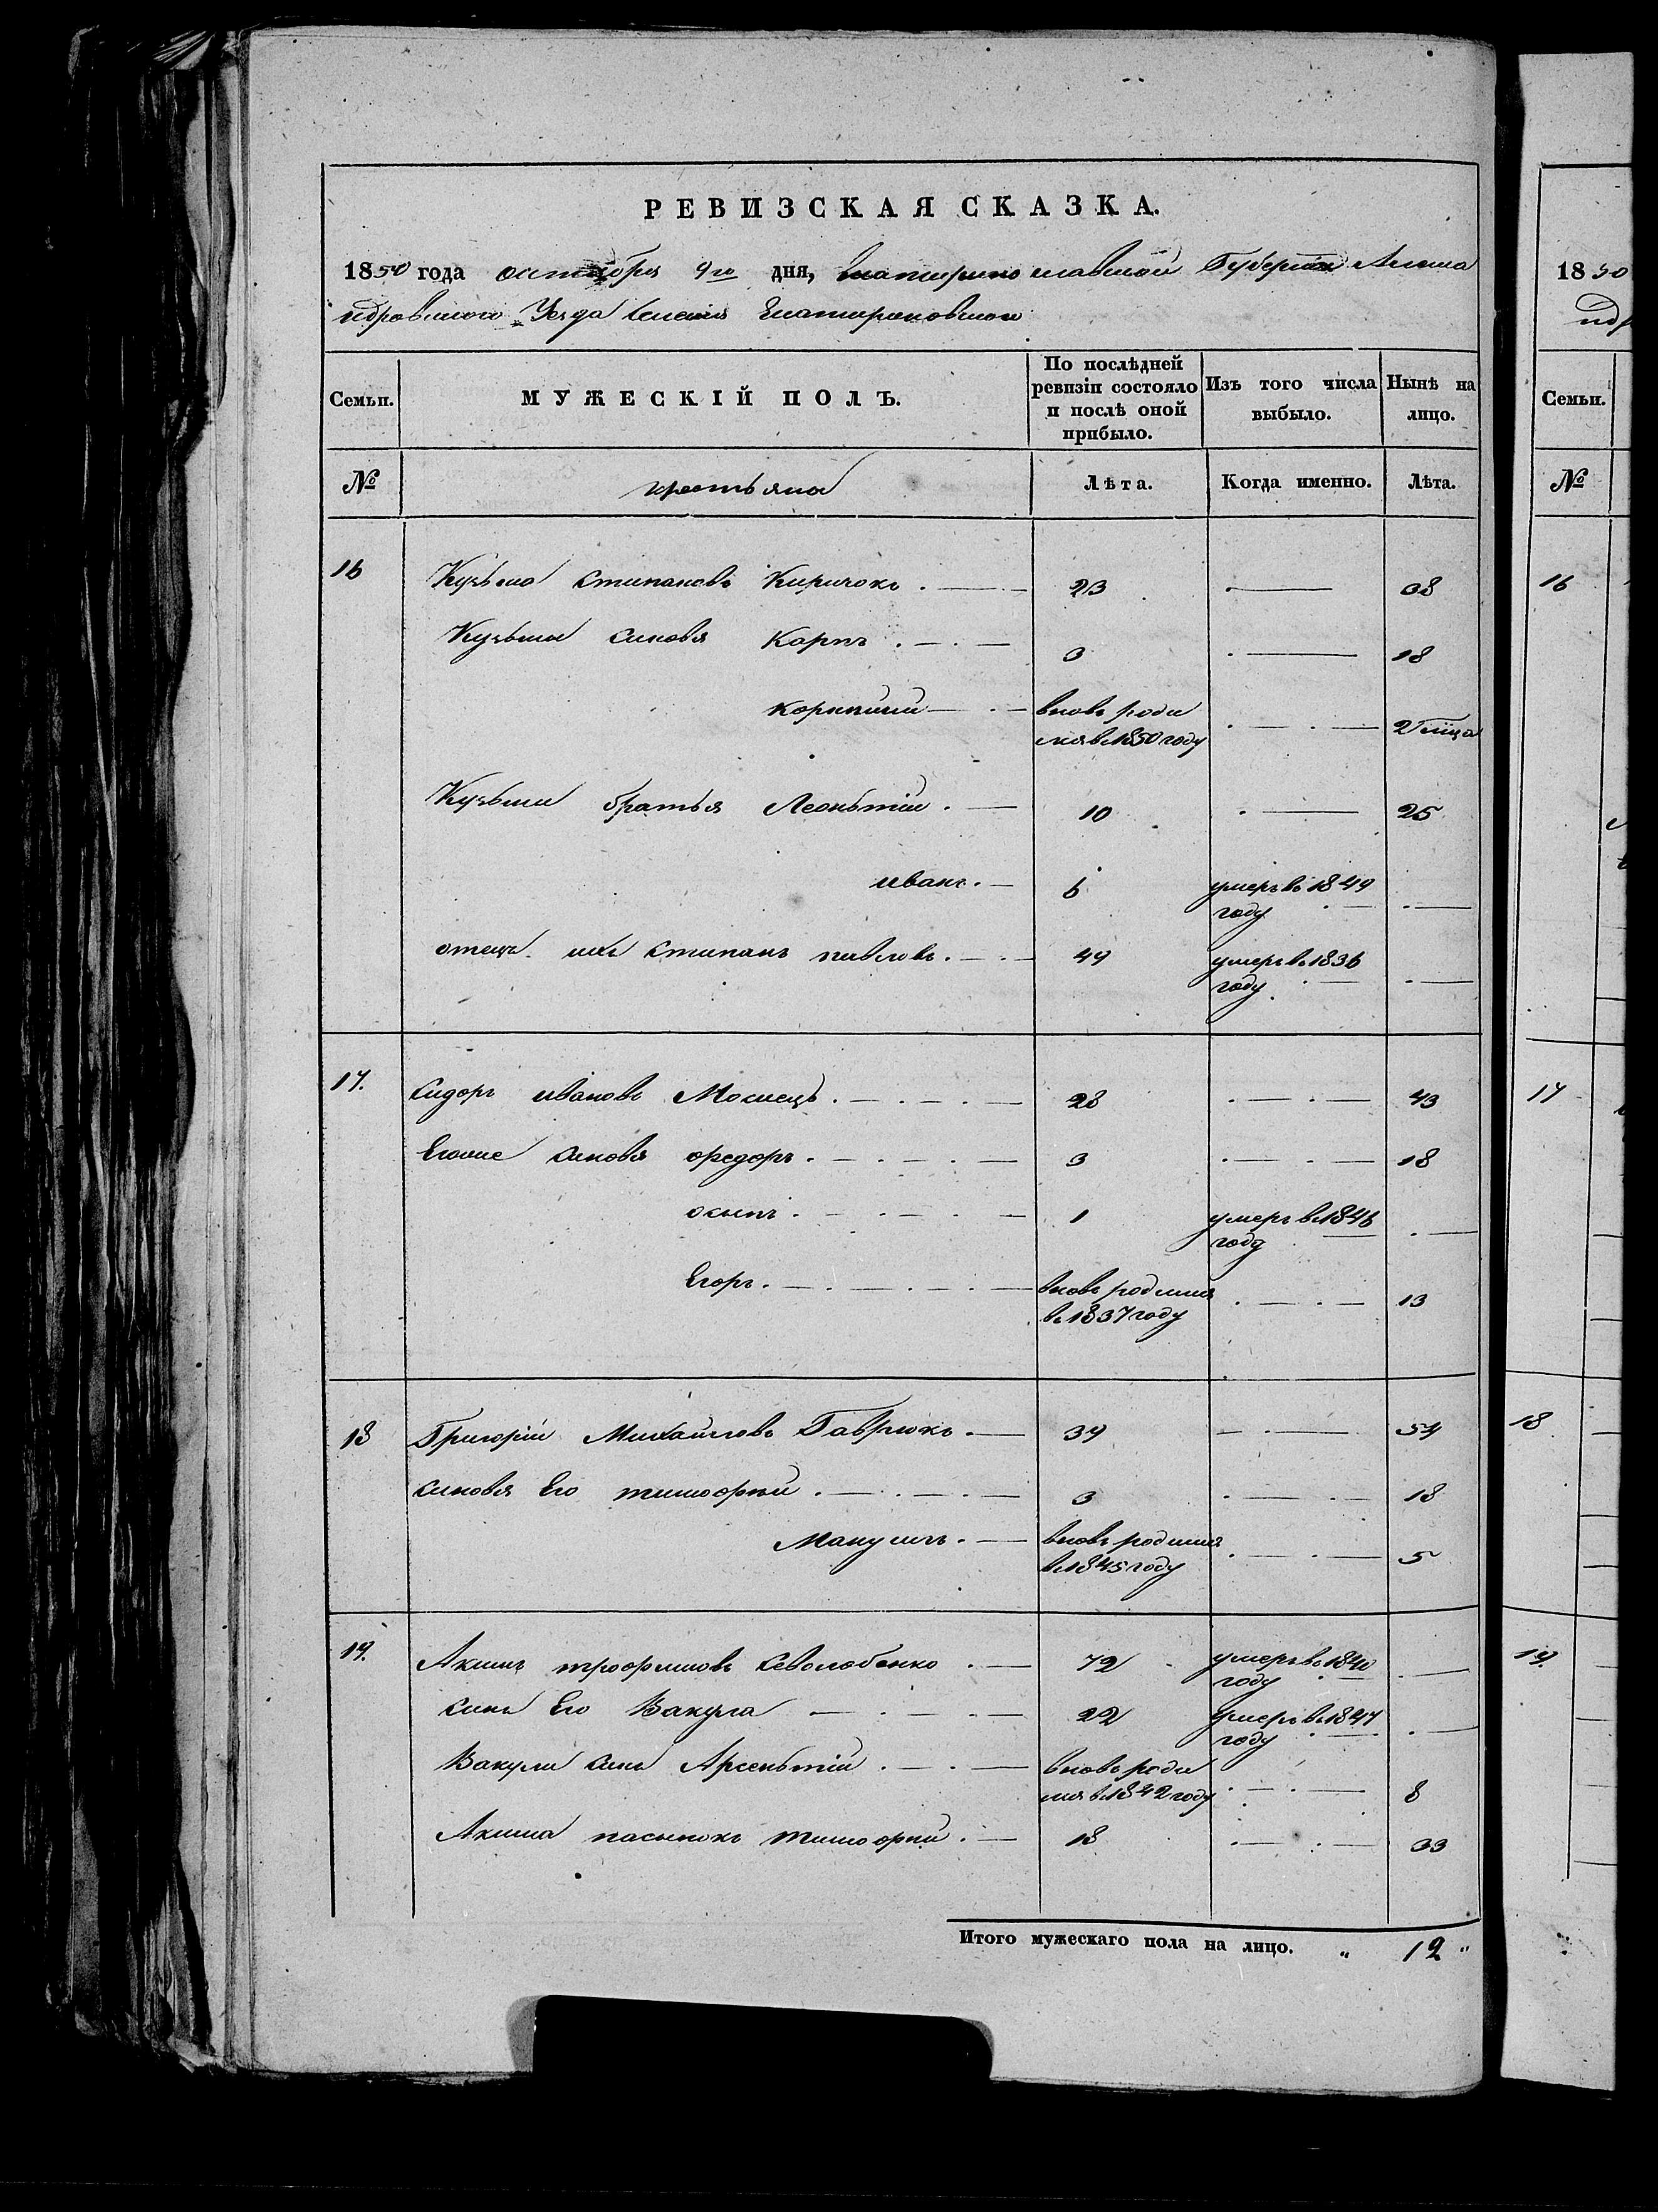 РЕВИЗСКАЯ СКАЗКА.
1850 года октября 9го дня, Екатеринославской Губернии Алекса
ндровского Уезда Селения Екатериновки
1850
Семьи. МУЖЕСКІЙ ПОЛЪ. По послѣдней ревизіи состояло и послѣ оной прибыло. Изъ того числа выбыло. Нынѣ на лицо.
Семьи.
№ крестьяна Лѣта. Когда именно. Лѣта.
№
16 Кузьма Степановъ Киричокъ . — 23 . — 38
16
Кузьмы синовя Карпъ . — . — 3 . — 18
Корнѣй — . — вновь роди
лся въ 1850 году . — . — 2 мѣсяца
Кузьмы братья Леоньтій . — 10 . — 25
иванъ . — 6 умеръ въ 1849
году . — . —
отецъ ихъ Степанъ павловъ . — . — 49 умеръ въ 1836
году . — . —
17. Сидоръ ивановъ Мосиецъ . — . — . — 28 . — . — 43
17
Его синовя федоръ . — . — . — 3 . — . — 18
осипъ . — . — . — 1 умеръ въ 1846
году . — . —
Егоръ . — . — . — . — вновь родился
въ 1837 году . — . — 13
18 Григорій Михайловъ Гаврюкъ . — 39 — . — 54
18
синовя Его тимофѣй . — . — . — 3 . — . — 18
Мануилъ . — вновь родился
въ 1845 году . — . — 5
19. Акимъ трофимовъ Севолобенко . — 72 умеръ въ 1840
году . — . —
19.
синъ Его Вакула — . — . — 22 умеръ въ 1847
году . — . —
Вакулы синъ Арсеньтій . — . — вновь роди
лся въ 1842 году . — . — 8
Акима пасынокъ тимофѣй . — 18 . — . — 33
Итого мужескаго пола на лицо. „ 12 „